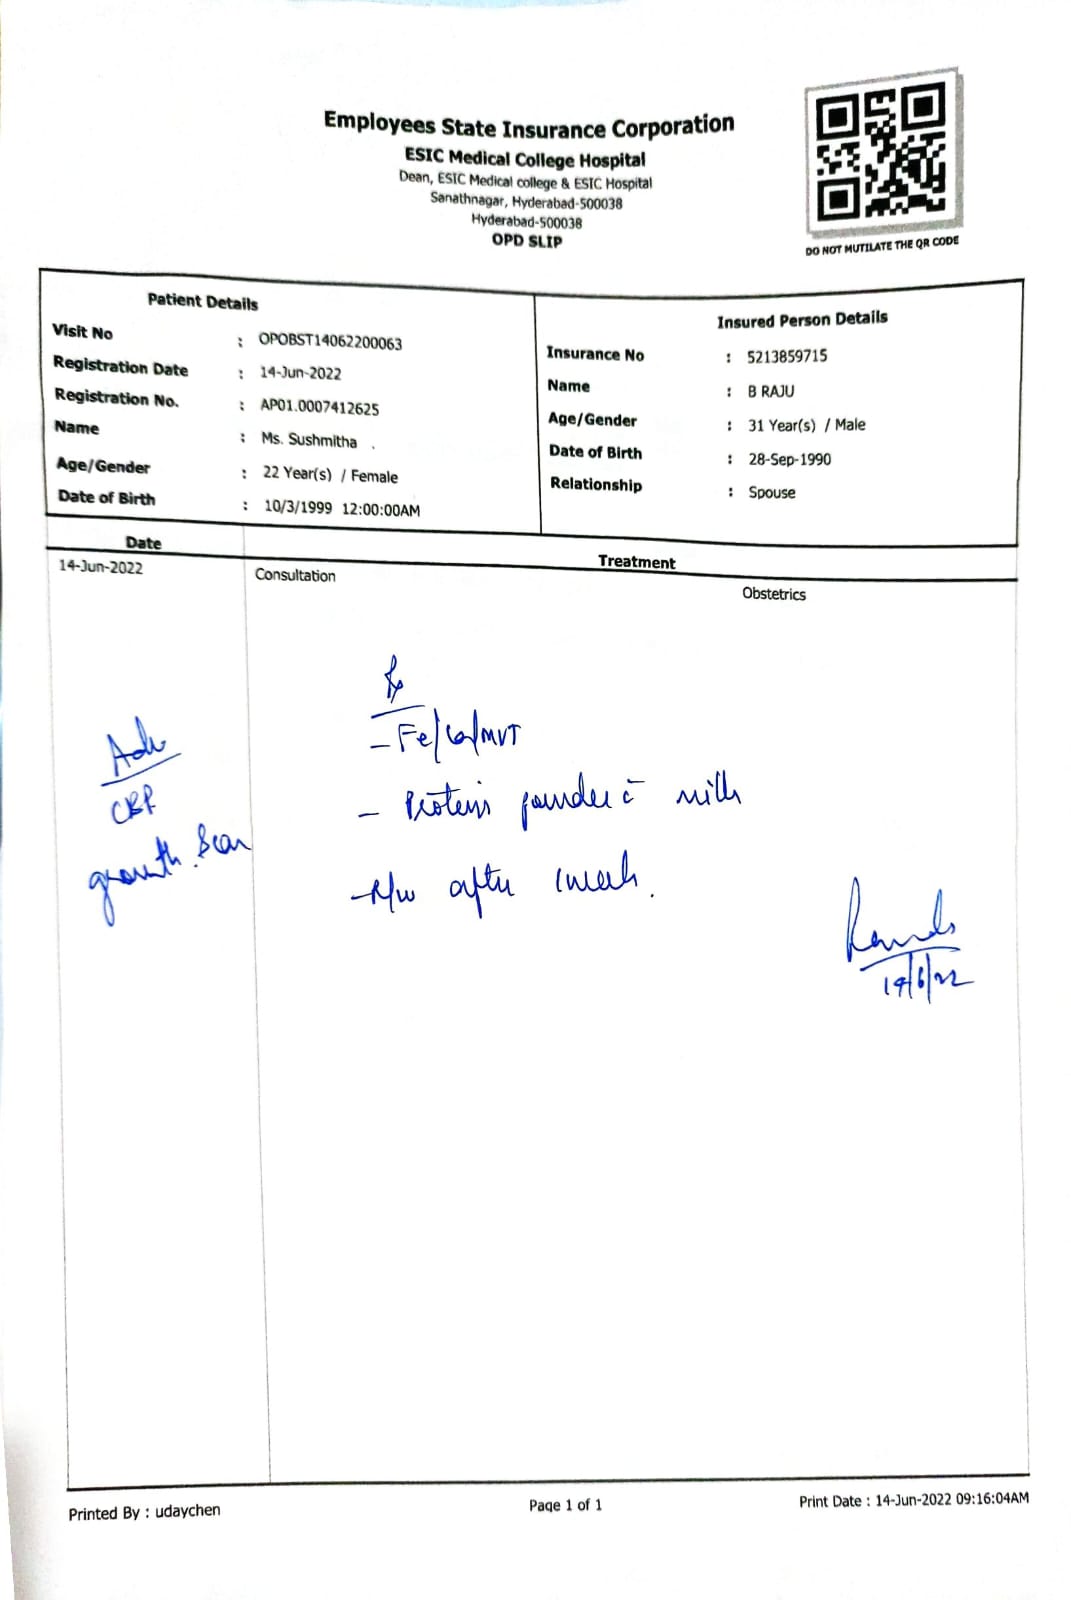 Employees State Insurance Corporation
ESIC Medical College Hospital
Dean, ESIC Medical college & ESIC Hospital
Sanathnagar, Hyderabad-500038
Hyderabad-500038
OPD SLIP
DO NOT MUTILATE THE QR CODE
Patient Details
Visit No : OPOBST14062200063
Registration Date : 14-Jun-2022
Registration No. : AP01.0007412625
Name : Ms. Sushmitha .
Age/Gender : 22 Year(s) / Female
Date of Birth : 10/3/1999 12:00:00AM
Insured Person Details
Insurance No : 5213859715
Name : B RAJU
Age/Gender : 31 Year(s) / Male
Date of Birth : 28-Sep-1990
Relationship : Spouse
Date Treatment
14-Jun-2022 Consultation Obstetrics
Rx
- Fe/Ca/MVT
- Protein powder c̄ milk
- R/w after 1 week.
Adv
growth scan
14/6/22
Printed By : udaychen
Page 1 of 1
Print Date : 14-Jun-2022 09:16:04AM